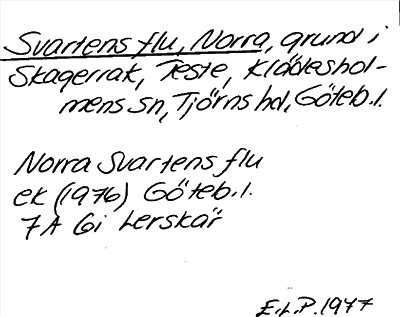 Svartens flu, Norra, grund i
Skagerrak, Teste, Klädeshol-
mens sn, Tjörns hd, Göteb. l.
Norra Svartens flu
ek (1976) Göteb. l.
7A 6i Lerskär
E.L.P. 1977